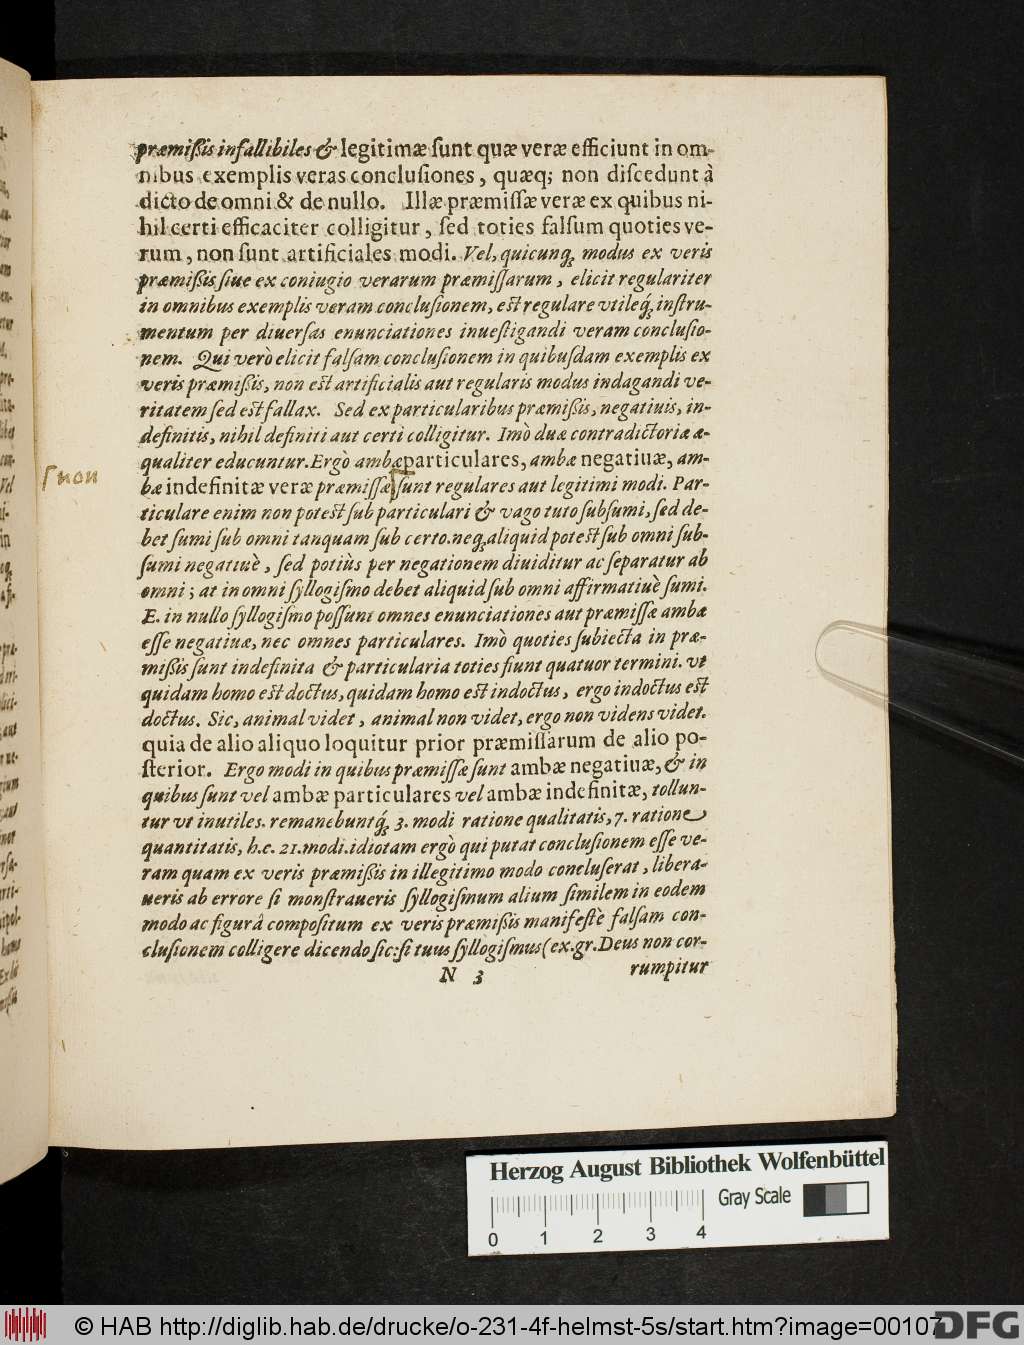 præmißis infallibiles & legitimæ ſunt quæ veræ efficiunt in om-
nibus exemplis veras concluſiones, quæq; non diſcedunt à
dicto de omni & de nullo. Illæ præmiſſæ veræ ex quibus ni-
hil certi efficaciter colligitur, ſed toties falſum quoties ve-
rum, non ſunt artificiales modi. Vel, quicunq; modus ex veris
præmißis ſiue ex coniugio verarum præmiſſarum, elicit regulariter
in omnibus exemplis veram concluſionem, est regulare vtileq́; inſtru-
mentum per diuerſas enunciationes inueſtigandi veram concluſio-
nem. Qui verò elicit falſam concluſionem in quibuſdam exemplis ex
veris præmißis, non est artificialis aut regularis modus indagandi ve-
ritatem ſed est fallax. Sed ex particularibus præmißis, negatiuis, in-
definitis, nihil definiti aut certi colligitur. Imò duæ contradictoriæ æ-
qualiter educuntur. Ergò ambæ particulares, ambæ negatiuæ, am-
ſ non
bæ indefinitæ veræ præmiſſæ ſunt regulares aut legitimi modi. Par-
ticulare enim non potest ſub particulari & vago tuto ſubſumi, ſed de-
bet ſumi ſub omni tanquam ſub certo. neq; aliquid potest ſub omni ſub-
ſumi negatiuè, ſed potiùs per negationem diuiditur ac ſeparatur ab
omni; at in omni ſyllogiſmo debet aliquid ſub omni affirmatiuè ſumi.
E. in nullo ſyllogiſmo poſſunt omnes enunciationes aut præmiſſæ ambæ
eſſe negatiuæ, nec omnes particulares. Imò quoties ſubiecta in præ-
mißis ſunt indefinita & particularia toties fiunt quatuor termini. vt
quidam homo est doctus, quidam homo est indoctus, ergo indoctus est
doctus. Sic, animal videt, animal non videt, ergo non videns videt.
quia de alio aliquo loquitur prior præmiſſarum de alio po-
ſterior. Ergo modi in quibus præmiſſæ ſunt ambæ negatiuæ, & in
quibus ſunt vel ambæ particulares vel ambæ indefinitæ, tollun-
tur vt inutiles. remanebuntq́; 3. modi ratione qualitatis, 7. ratione
quantitatis, h.e. 21. modi. idiotam ergò qui putat concluſionem eſſe ve-
ram quam ex veris præmißis in illegitimo modo concluſerat, libera-
ueris ab errore ſi monſtraueris ſyllogiſmum alium ſimilem in eodem
modo ac figurâ compoſitum ex veris præmißis manifeſtè falſam con-
cluſionem colligere dicendo ſic: ſi tuus ſyllogiſmus (ex. gr. Deus non cor-
N 3 rumpitur
Herzog August Bibliothek Wolfenbüttel
Gray Scale
0 1 2 3 4
© HAB http://diglib.hab.de/drucke/o-231-4f-helmst-5s/start.htm?image=00107
DFG